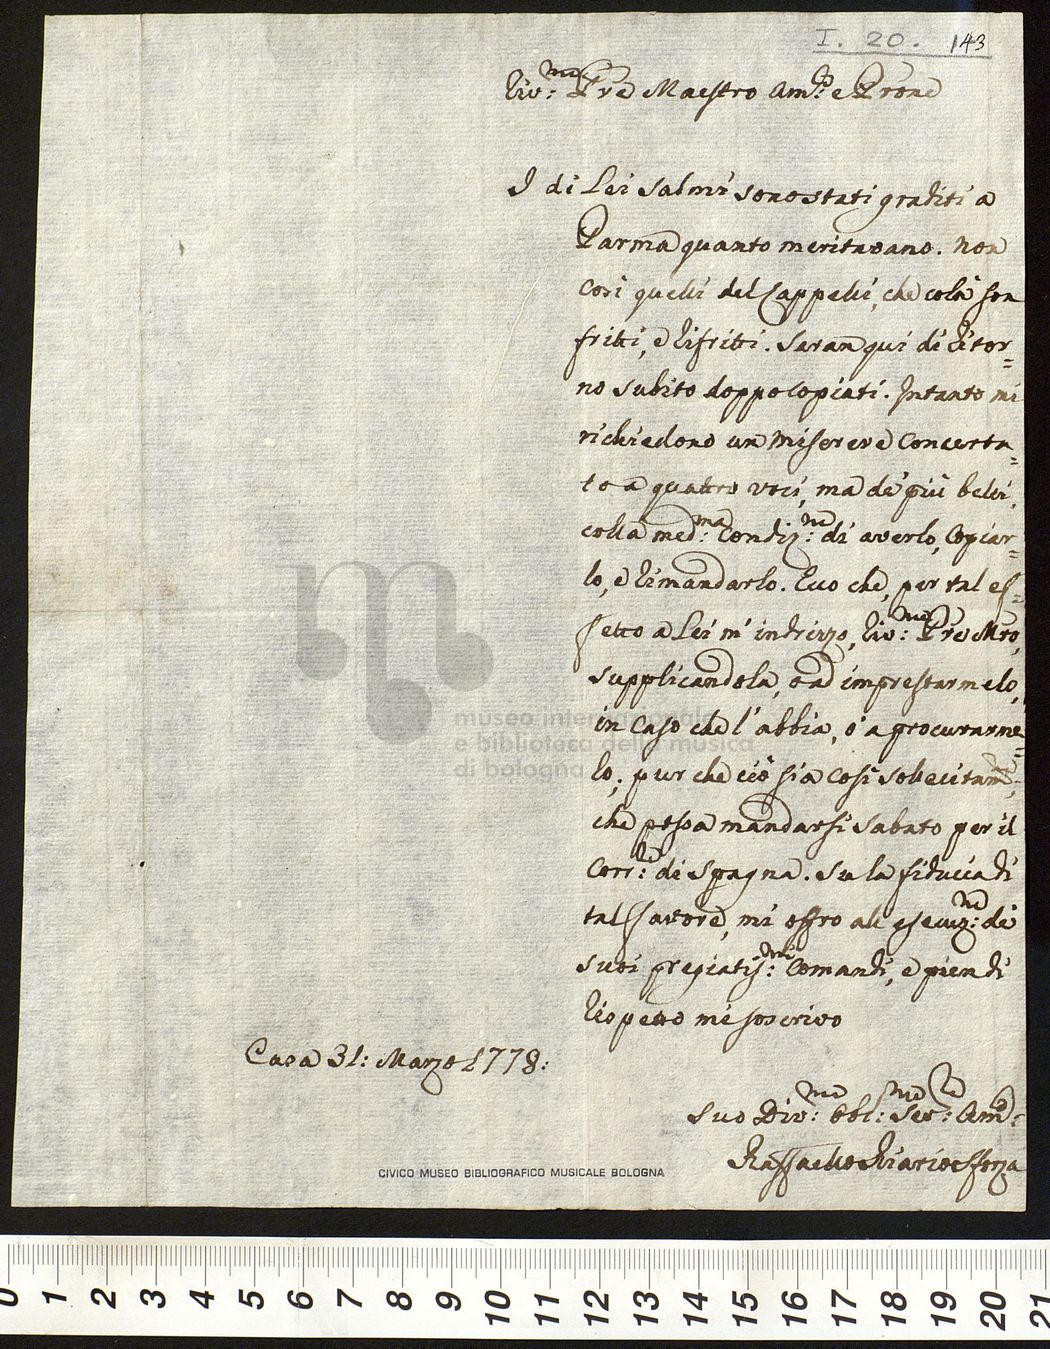 I. 20. 143
Riv:mo Pre Maestro Am:co e Prone
I di Lei Salmi sono stati graditi a
Parma quanto meritavano. Non
così quelli del Cappelli, che colà son
fritti, e rifritti. Saran qui di ritor=
no subito doppo copiati. Intanto mi
richiedono un Miserere concerta=
to a quattro voci, ma de' più belli,
colla med:ma Condiz:ne di averlo, Copiar=
lo, e rimandarlo. Ecco che, per tal ef=
fetto a Lei m' indrizzo, Riv:mo Pre Mro,
supplicandola, o ad imprestarmelo,
in caso che l' abbia, o' a procurarme=
lo; pur che ciò sia così sollecitam:te,
che possa mandarsi Sabato per il
Corr:re di Spagna. Su la fiducia di
tal favore, mi offro all' esecuz:ne de
suoi pregiatis:mi Comandi, e pien di
rispetto mi soscrivo
Casa 31: Marzo 1778:
Suo Div:mo Obl:mo Ser:re Am:co
Raffaello Riario Sforza
museo internazionale
e biblioteca della musica
di bologna
CIVICO MUSEO BIBLIOGRAFICO MUSICALE BOLOGNA
0 1 2 3 4 5 6 7 8 9 10 11 12 13 14 15 16 17 18 19 20 21